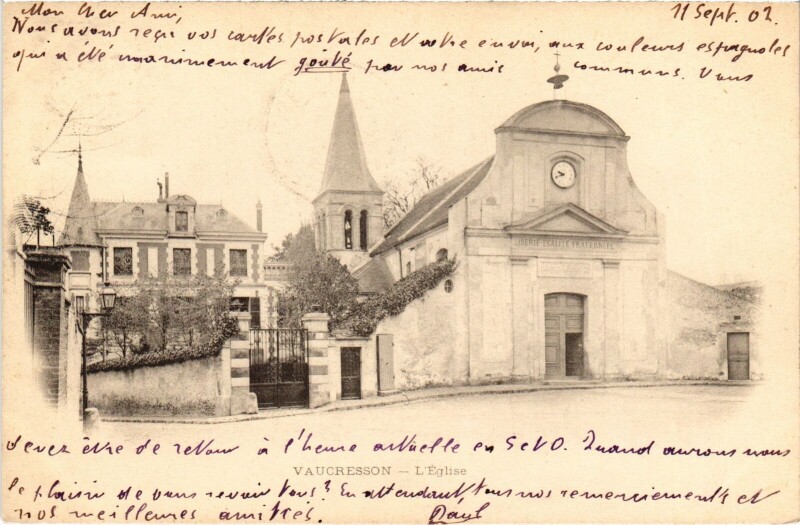 Mon cher Ami,
11 Sept. 02.
Nous avons reçu vos cartes postales et votre envoi, aux couleurs espagnoles
qui a été unanimement goûté par nos amis communs. Vous
LIBERTÉ EGALITÉ FRATERNITÉ
devez être de retour à l'heure actuelle en S et O. Quand aurons nous
VAUCRESSON — L'Église
le plaisir de vous revoir tous? En attendant, tous nos remerciements et
nos meilleures amitiés. Paul